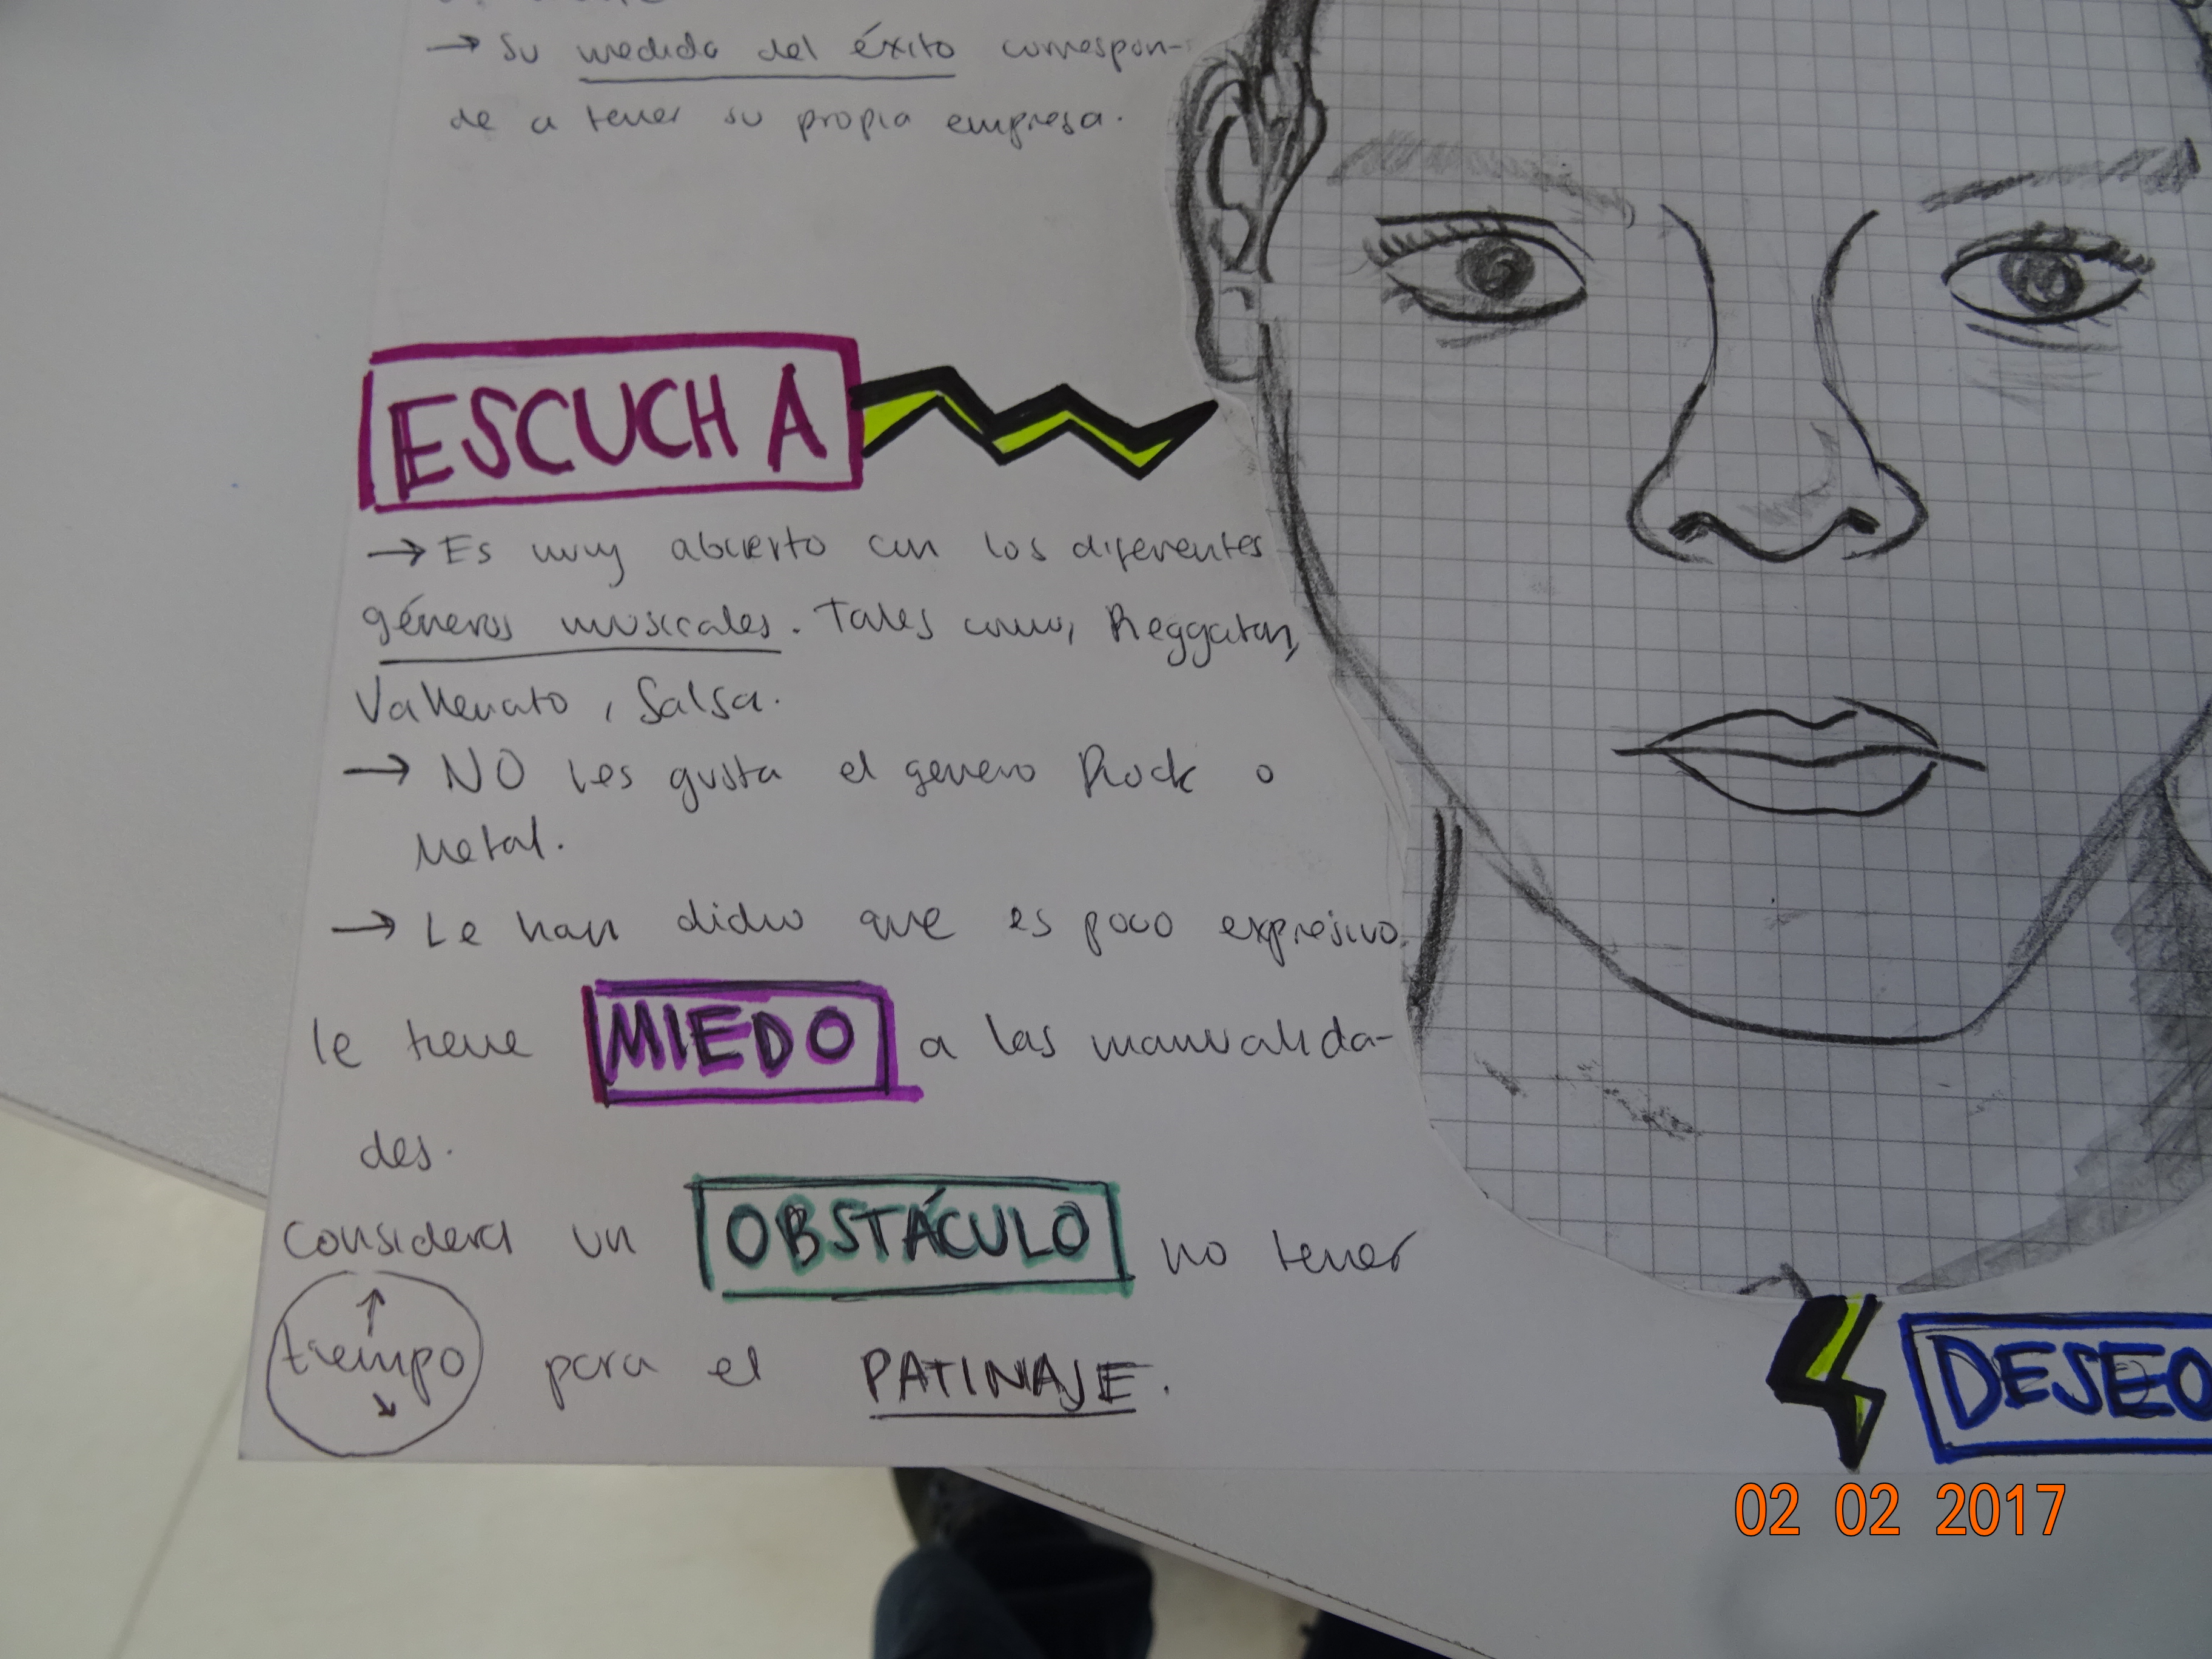 → Su medida del éxito correspon-
de a tener su propia empresa.
ESCUCHA
→ Es muy abierto con los diferentes
géneros musicales. Tales como, Reggaton,
Vallenato, Salsa.
→ NO les gusta el genero Rock o
Metal.
→ Le han dicho que es poco expresivo.
le tiene MIEDO a las manualida-
des.
Considera un OBSTÁCULO no tener
tiempo para el PATINAJE.
DESEO
02 02 2017